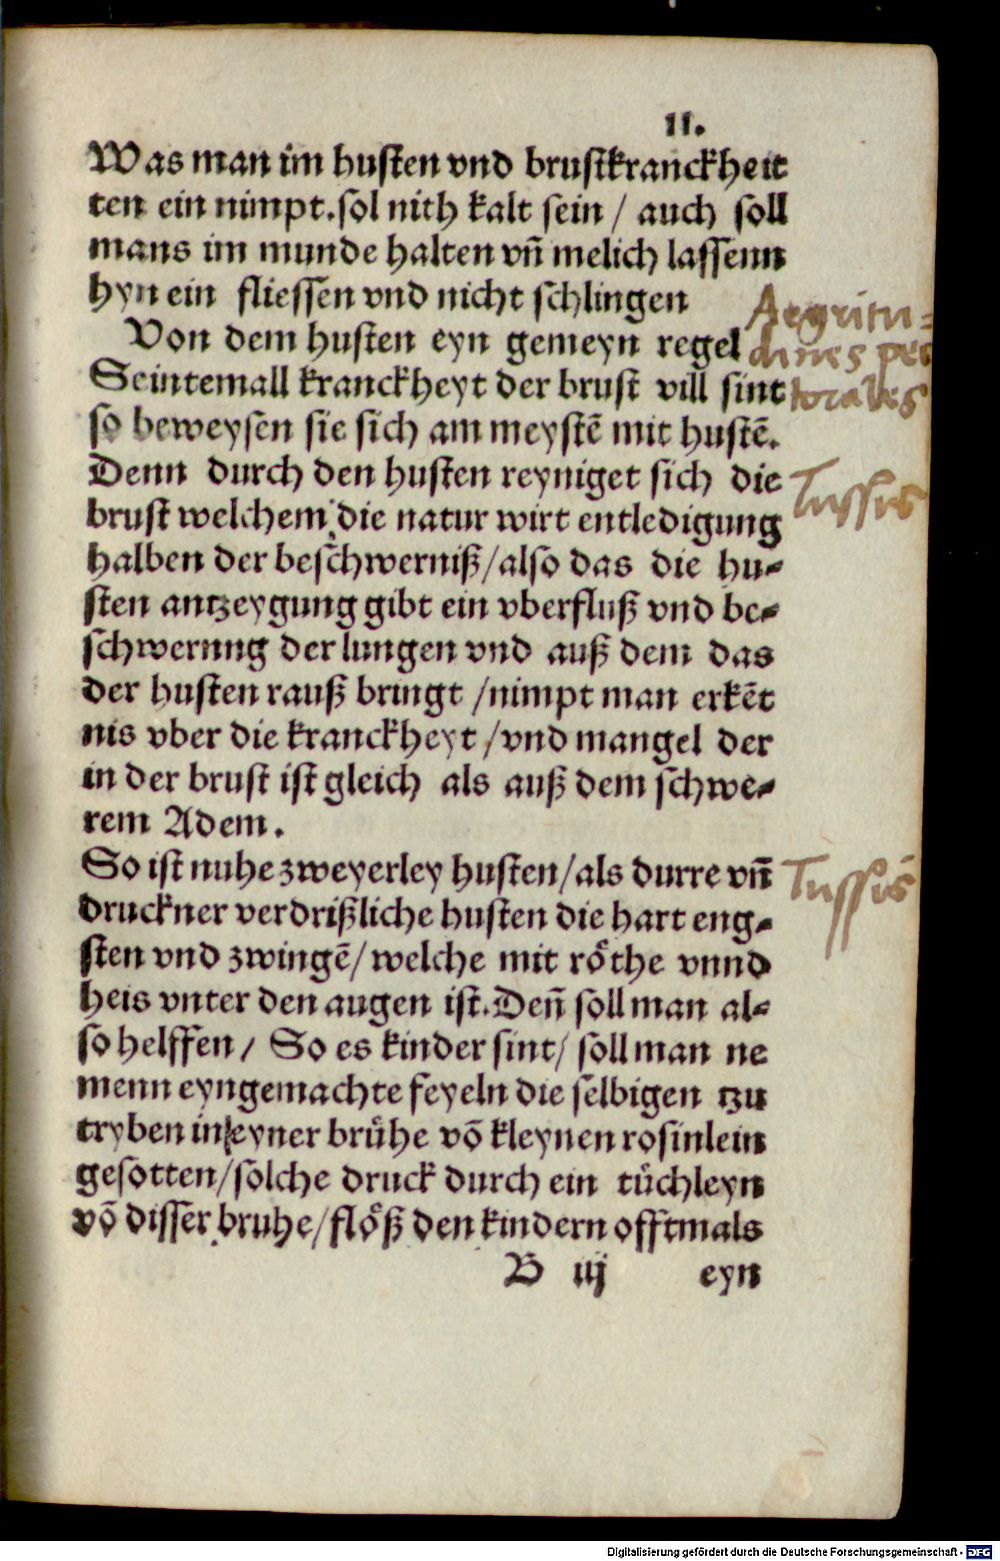 11.
Was man im husten vnd brustkranckheit
ten ein nimpt. sol nith kalt sein / auch soll
mans im munde halten vñ melich lassenn
hyn ein fliessen vnd nicht schlingen
Aegritu-
Von dem husten eyn gemeyn regel
dines pec
Seintemall kranckheyt der brust vill sint
torales
so beweysen sie sich am meystē mit hustē.
Denn durch den husten reyniget sich die
Tussis
brust welchem die natur wirt entledigung
halben der beschwerniß/also das die hu-
sten antzeygung gibt ein vberfluß vnd be-
schwerung der lungen vnd auß dem das
der husten rauß bringt /nimpt man erkēt
nis vber die kranckheyt /vnd mangel der
in der brust ist gleich als auß dem schwe-
rem Adem.
So ist nuhe zweyerley husten/als durre vñ
Tussis
druckner verdrißliche husten die hart eng-
sten vnd zwingē/ welche mit rôthe vnnd
heis vnter den augen ist. Deñ soll man al-
so helffen / So es kinder sint/ soll man ne
menn eyngemachte feyeln die selbigen tzu
tryben in eyner brühe vō kleynen rosinlein
gesotten/solche druck durch ein tüchleyn
vō disser bruhe/flôß den kindern offtmals
B iij eyn
Digitalisierung gefördert durch die Deutsche Forschungsgemeinschaft - DFG